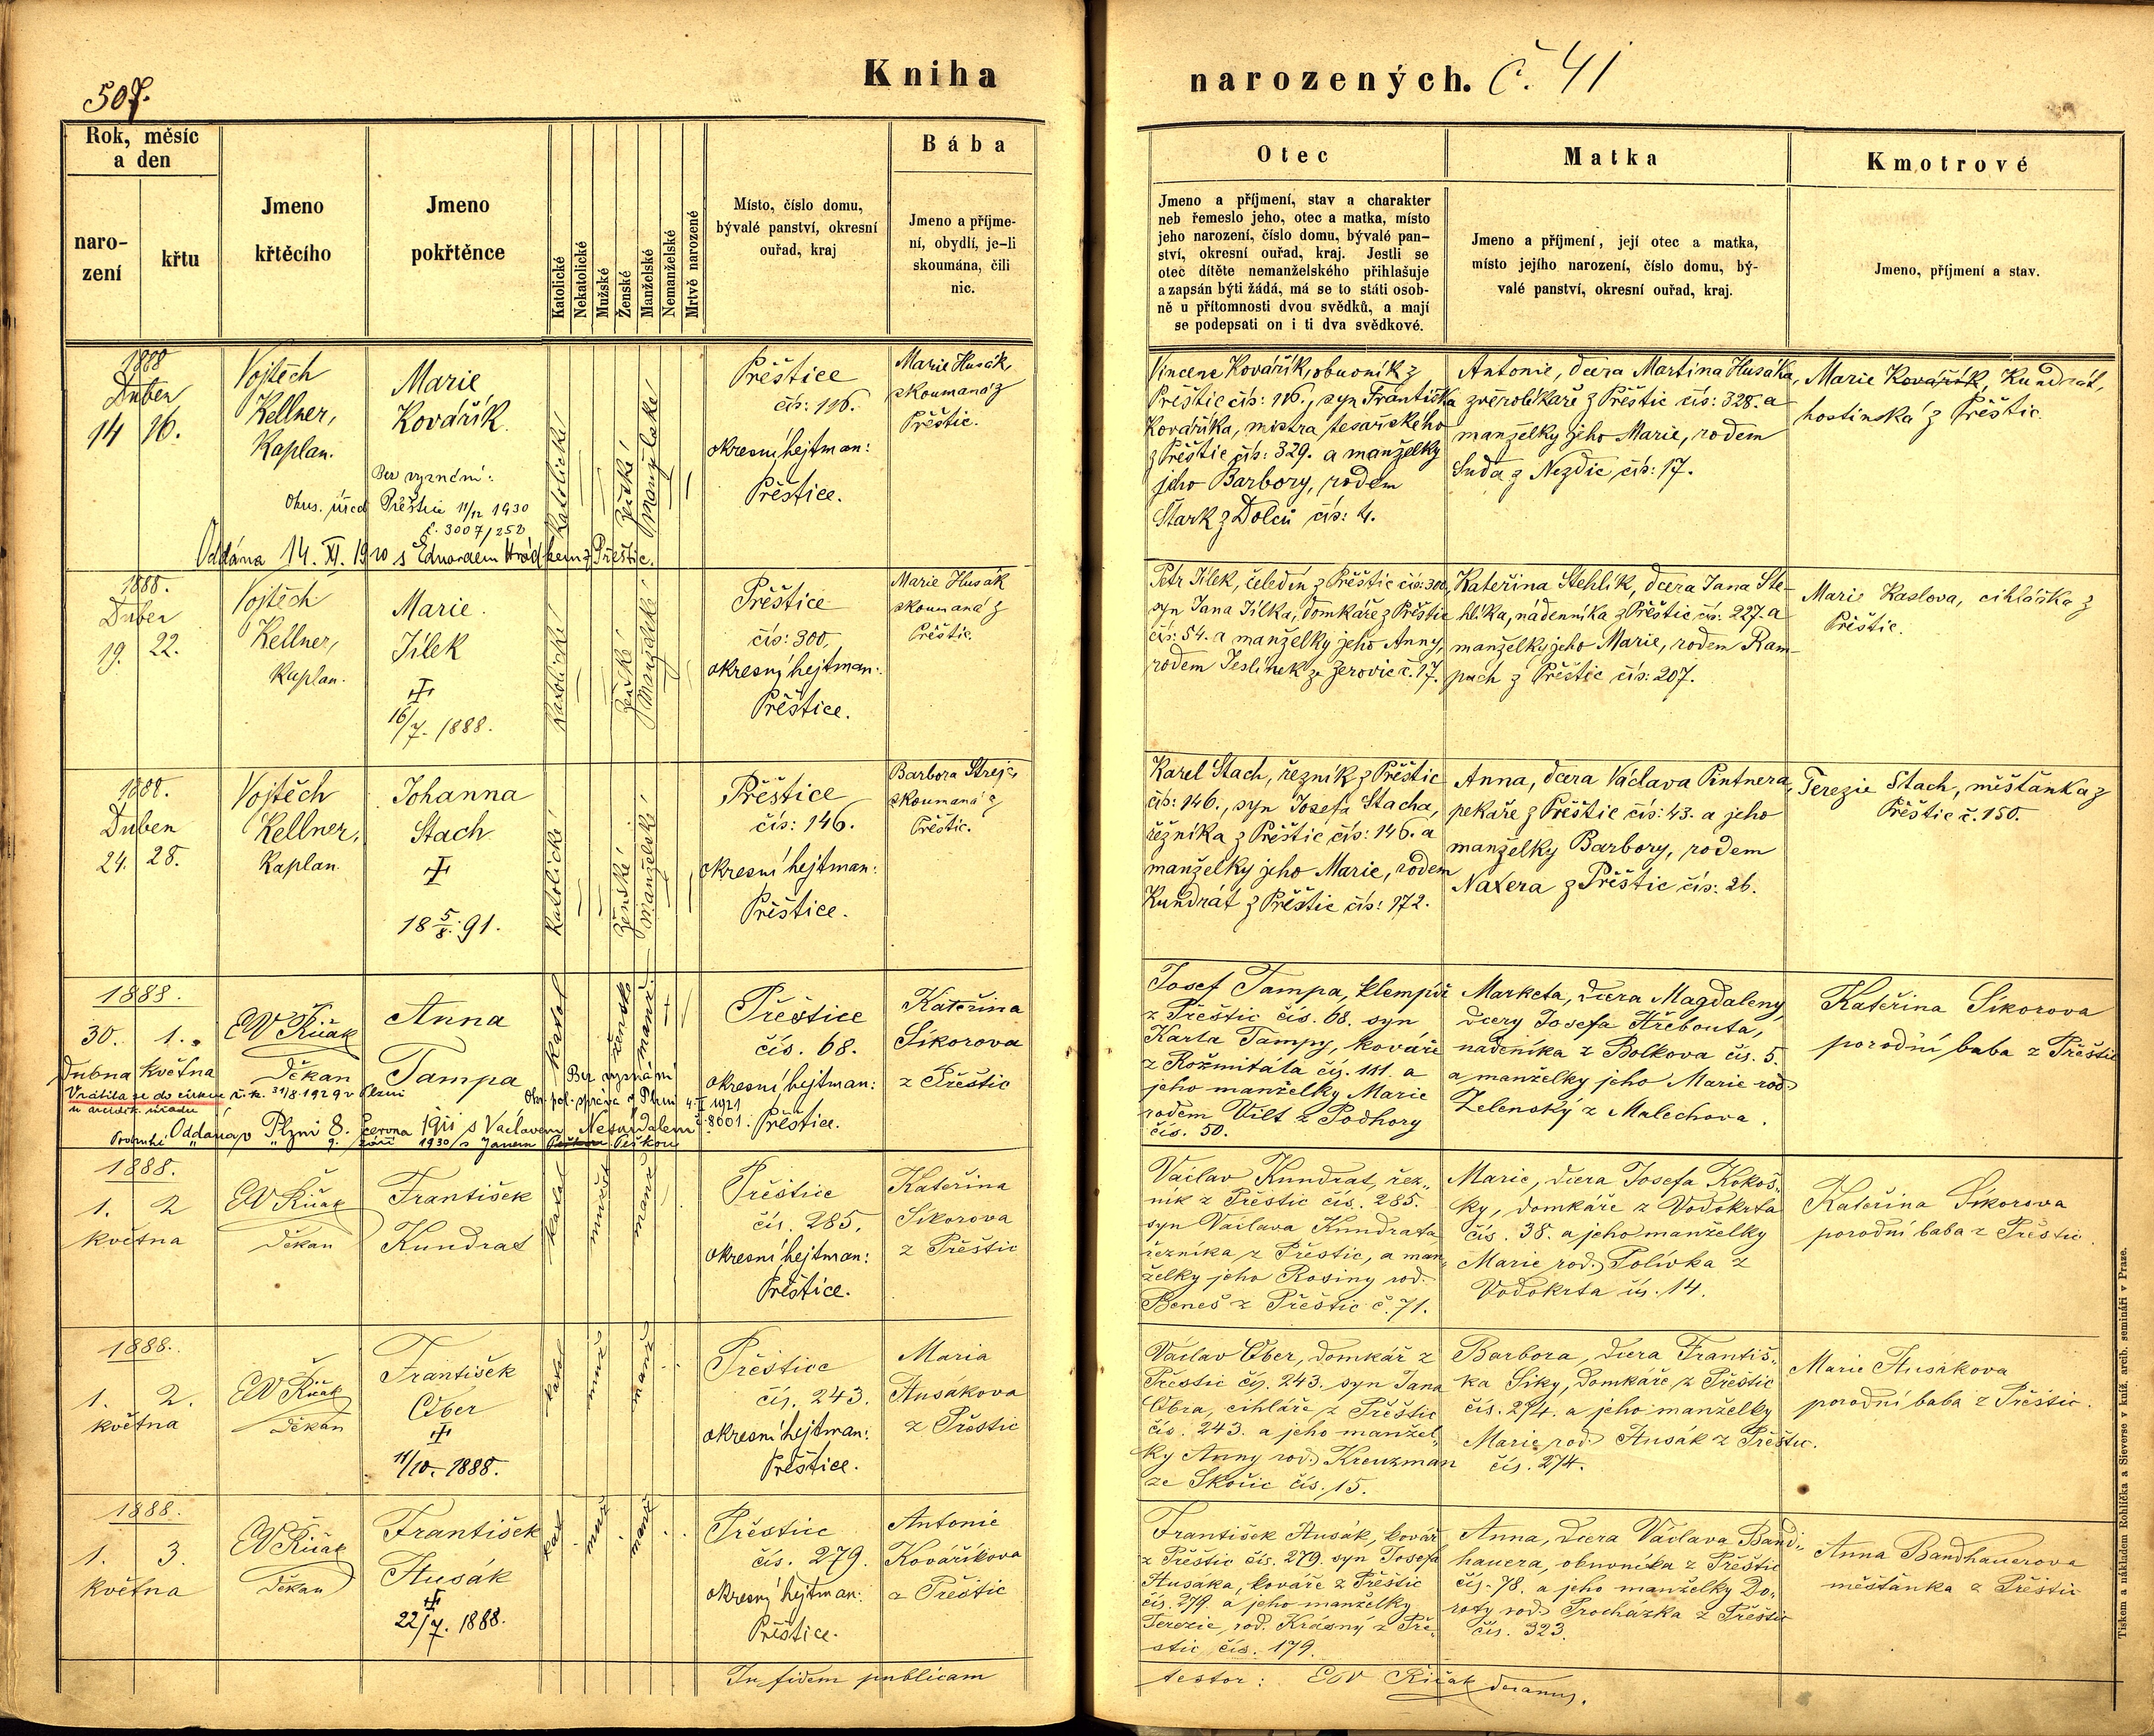 507.
Kniha
narozených. č. 41
Rok, měsíc
a den
naro-
zení
křtu
Jmeno
křtěcího
Jmeno
pokřtěnce
Katolické
Nekatolické
Mužské
Ženské
Manželské
Nemanželské
Mrtvě narozené
Místo, číslo domu,
bývalé panství, okresní
ouřad, kraj
Bába
Jmeno a příjme-
ní, obydlí, je-li
skoumána, čili
nic.
Otec
Jmeno a příjmení, stav a charakter
neb řemeslo jeho, otec a matka, místo
jeho narození, číslo domu, bývalé pan-
ství, okresní ouřad, kraj. Jestli se
otec dítěte nemanželského přihlašuje
a zapsán býti žádá, má se to státi osob-
ně u přítomnosti dvou svědků, a mají
se podepsati on i ti dva svědkové.
Matka
Jmeno a příjmení, její otec a matka,
místo jejího narození, číslo domu, bý-
valé panství, okresní ouřad, kraj.
Kmotrové
Jmeno, příjmení a stav.
1888
Duben
14 16.
Vojtěch
Kellner,
Kaplan.
Marie
Kovářík.
Bez vyznání:
Okres. úřad Přeštice 11/12 1930
č. 3007/258
Oddána 14. XI. 1910 s Eduardem Hrádkem z Přeštic.
Katolické
ženské
manželské
Přeštice
čís: 116.
okresní hejtman:
Přeštice.
Marie Husák,
skoumaná z
Přeštic.
Vincenc Kovářík, obuvník z
Přeštic čís: 116., syn Františka
Kováříka, mistra tesařského
z Přeštic čís: 329. a manželky
jeho Barbory, rodem
Stark z Dolců čís: 4.
Antonie, dcera Martina Husáka,
zvěrolékaře z Přeštic čís: 328. a
manželky jeho Marie, rodem
Suda z Nezdic čís: 17.
Marie Kovářík, Kundrát,
hostinská z Přeštic.
1888.
Duben
19. 22.
Vojtěch
Kellner,
Kaplan.
Marie
Jílek
16/7. 1888.
Katolické
ženské
Manželské
Přeštice
čís: 300,
okresní hejtman:
Přeštice.
Marie Husák
skoumaná z
Přeštic.
Petr Jílek, čeledín z Přeštic čís: 300,
syn Jana Jílka, domkáře z Přeštic
čís: 54. a manželky jeho Anny,
rodem Jeslínek ze Žerovic č. 17.
Kateřina Stehlík, dcera Jana Ste-
hlíka, nádenníka z Přeštic čís: 227. a
manželky jeho Marie, rodem Ram-
pach z Přeštic čís: 207.
Marie Kaslova, cihlářka z
Přeštic.
1888.
Duben
24. 28.
Vojtěch
Kellner,
Kaplan.
Johanna
Stach
18 5/8. 91.
Katolické
ženské
manželské
Přeštice
čís: 146.
okresní hejtman:
Přeštice.
Barbora Strejc,
skoumaná z
Přeštic.
Karel Stach, řezník z Přeštic
čís: 146., syn Josefa Stacha,
řezníka z Přeštic čís: 146. a
manželky jeho Marie, rodem
Kundrát z Přeštic čís: 172.
Anna, dcera Václava Pintnera,
pekaře z Přeštic čís: 43. a jeho
manželky Barbory, rodem
Naxera z Přeštic čís: 26.
Terezie Stach, měšťanka z
Přeštic č. 150.
1888.
30. 1.
Dubna Května
EW Řičák
Děkan
Anna
Tampa
Bez vyznání
Okr. pol. správa v Plzni 4. I 1921
č. 8001.
Vrátila se do církve ř. k. 31/8. 1929 v Plzni
u arciděk. úřadu
Oddána v Plzni 8. června 1911 s Václavem Nesnídalem
Podruhé " " 9. září 1930 s Janem Peškou
katol
žensko
manž.
Přeštice
čís. 68.
okresní hejtman:
Přeštice.
Kateřina
Síkorova
z Přeštic
Josef Tampa, klempíř
z Přeštic čís. 68. syn
Karla Tampy, kováře
z Rožmitála čís. 181. a
jeho manželky Marie
rodem Vilt z Podhory
čís. 50.
Marketa, dcera Magdaleny,
dcery Josefa Hřebouta,
nádeníka z Bolkova čís. 5.
a manželky jeho Marie rod.
Zelenský z Malechova.
Kateřina Síkorova
porodní baba z Přeštic
1888.
1. 2
května
EW Řičák
Děkan
František
Kundrat
katol
mužsk
manž
Přeštice
čís. 285.
okresní hejtman:
Přeštice.
Kateřina
Síkorova
z Přeštic
Václav Kundrat, řez-
ník z Přeštic čís. 285.
syn Václava Kundrata
řezníka z Přeštic, a man-
želky jeho Rosiny rod.
Beneš z Přeštic č. 71.
Marie, dcera Josefa Kokoš-
ky, domkáře z Vodokrta
čís. 38. a jeho manželky
Marie rod. Polívka z
Vodokrta čís. 14.
Kateřina Síkorova
porodní baba z Přeštic.
1888.
1. 2.
května
EW Řičák
Děkan
František
Ober
11/10. 1888.
katol
muž
manž
Přeštice
čís. 243.
okresní hejtman:
Přeštice.
Maria
Husákova
z Přeštic
Václav Ober, domkář z
Přeštic čís. 243. syn Jana
Obra, cihláře z Přeštic
čís. 243. a jeho manžel-
ky Anny rod. Kreuzman
ze Skočic čís. 15.
Barbora, dcera Františ-
ka Siky, domkáře z Přeštic
čís. 274. a jeho manželky
Marie rod. Husák z Přeštic.
čís. 274.
Marie Husákova
porodní baba z Přeštic.
1888.
1. 3.
května
EW Řičák
Děkan
František
Husák
22/7. 1888.
kat
muž
manž
Přeštice
čís. 279.
okresní hejtman:
Přeštice.
Antonie
Kováříkova
z Přeštic
František Husák, kovář
z Přeštic čís. 279. syn Josefa
Husáka, kováře z Přeštic
čís. 279. a jeho manželky
Terezie, rod. Krásný z Pře-
štic čís. 179.
Anna, dcera Václava Band-
hauera, obuvníka z Přeštic
čís. 78. a jeho manželky Do-
roty rod. Procházka z Přeštic
čís. 323.
Anna Bandhauerova
měšťanka z Přeštic
In fidem publicam
testor: EW Řičák decanus.
Tiskem a nákladem Rohlíčka a Sieverse v kníž. arcib. semináři v Praze.